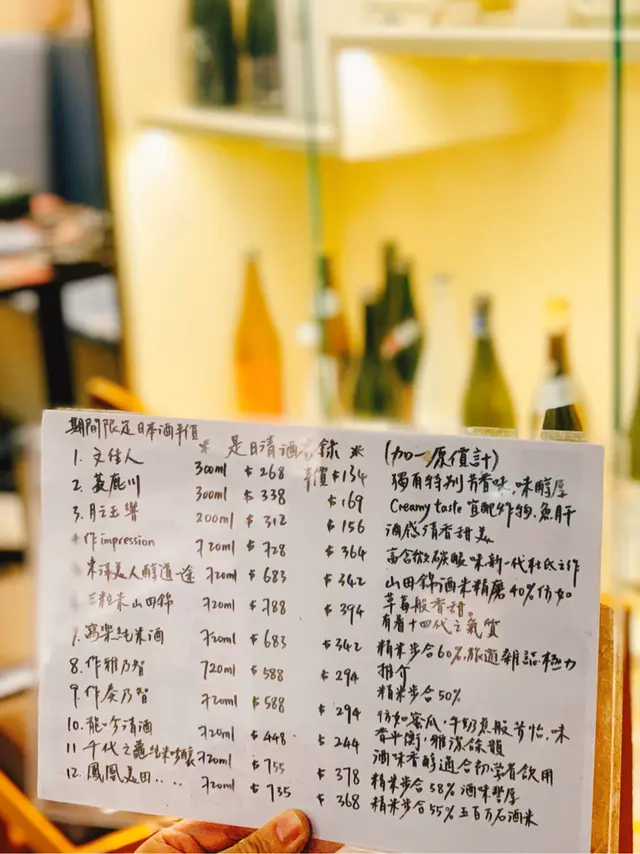 期間限定日本酒半價
※ 是日清酒名錄 ※ (加一原價計)
1. 文佳人 300ml $268 半價$134 獨有特別芳香味,味醇厚
2. 蓬鹿川 300ml $338 $169 Creamy taste 宜配炸物,魚肝
3. 月之玉響 200ml $312 $156 酒感清香甜美
4. 作impression 720ml $728 $364 富含微碳酸味新一代杜氏之作
美人 720ml $683 $342 山田錦酒米精磨40%仿如
三粒米山田錦 720ml $788 $394 草莓般香甜。
有着十四代之氣質
7. 寫樂純米酒 720ml $683 $342 精米步合60%,旅遊雜誌極力
推介
8. 作雅乃智 720ml $588 $294 精米步合50%
9. 作奏乃智 720ml $588 $294 仿如蜜瓜,牛奶焦般芳怡,味
香平衡,雅淡餘韻
10. 龍吟清酒 720ml $448 $244 酒味香醇適合初學者飲用
11 千代之龜純米吟釀 720ml $755 $378 精米步合58% 酒味豐厚
12. 鳳凰美田.... 720ml $735 $368 精米步合55%五百万石酒米